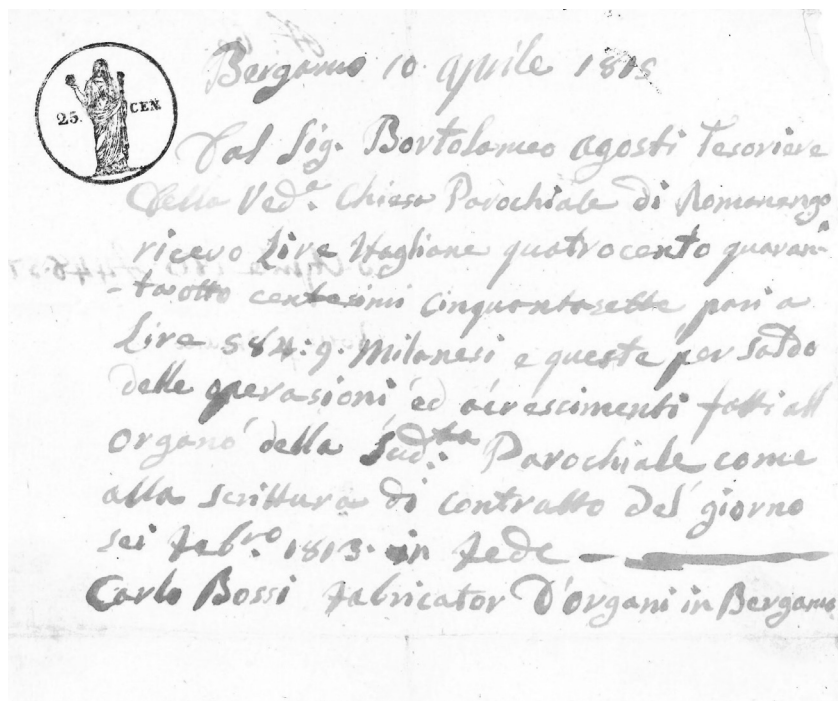 Bergamo 10. aprile 1815
25. CEN.
Dal Sig. Bortolameo agosti Tesoriere
Della Ved.ª Chiesa Parochiale di Romanengo
ricevo Lire Itagliane quatrocento quaran-
-taotto centesimi cinquantasette pari a
Lire 584:9. Milanesi e queste per saldo
delle operasioni ed acrescimenti fatti all
organo della Sud.ta Parochiale come
alla scrittura di contratto del giorno
sei febr.ro 1813. in fede
Carlo Bossi fabricator D'organi in Bergamo